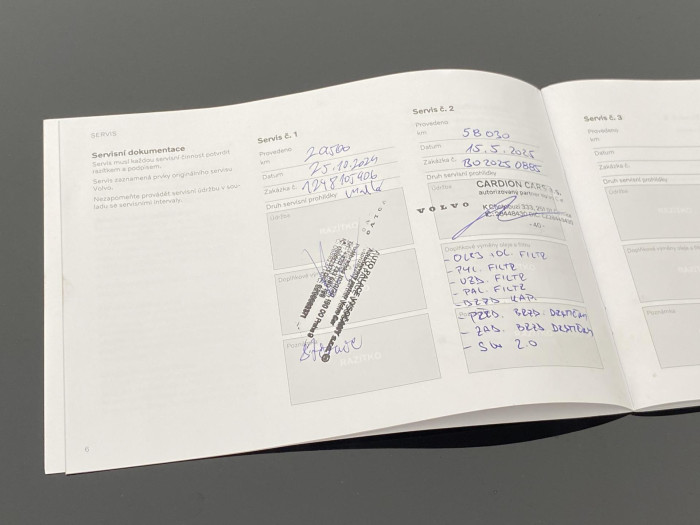 SERVIS
Servisní dokumentace
Servis musí každou servisní činnost potvrdit
razítkem a podpisem.
Servis zaznamená prvky originálního servisu
Volvo.
Nezapomeňte provádět servisní údržbu v sou-
ladu se servisními intervaly.
6
Servis č. 1
Provedeno
km
29500
Datum
25.10.2024
Zakázka č.
1248105406
Druh servisní prohlídky
Malá
Údržba
RAZÍTKO
Doplňkové výměny oleje a filtru
AUTO PALACE VYSOČANY s.r.o.
190 00 Praha 9
Poznámka
RAZÍTKO
Servis č. 2
Provedeno
km
58030
Datum
15.5.2025
Zakázka č.
BO2025 0885
Druh servisní prohlídky
Údržba
CARDION CARS s.r.o.
autorizovaný partner
VOLVO
-40-
Doplňkové výměny oleje a filtru
- OLEJ + OL. FILTR
- PYL. FILTR
- VZD. FILTR
- PAL. FILTR
- BRZD KAP.
Poznámka
- PŘED. BRZD. DESTIČKY
- ZAD. BRZD DESTIČKY
- SW 2.0
Servis č. 3
Provedeno
km
Datum
Zakázka č.
Druh servisní prohlídky
Údržba
Doplňkové výměny
Poznámka